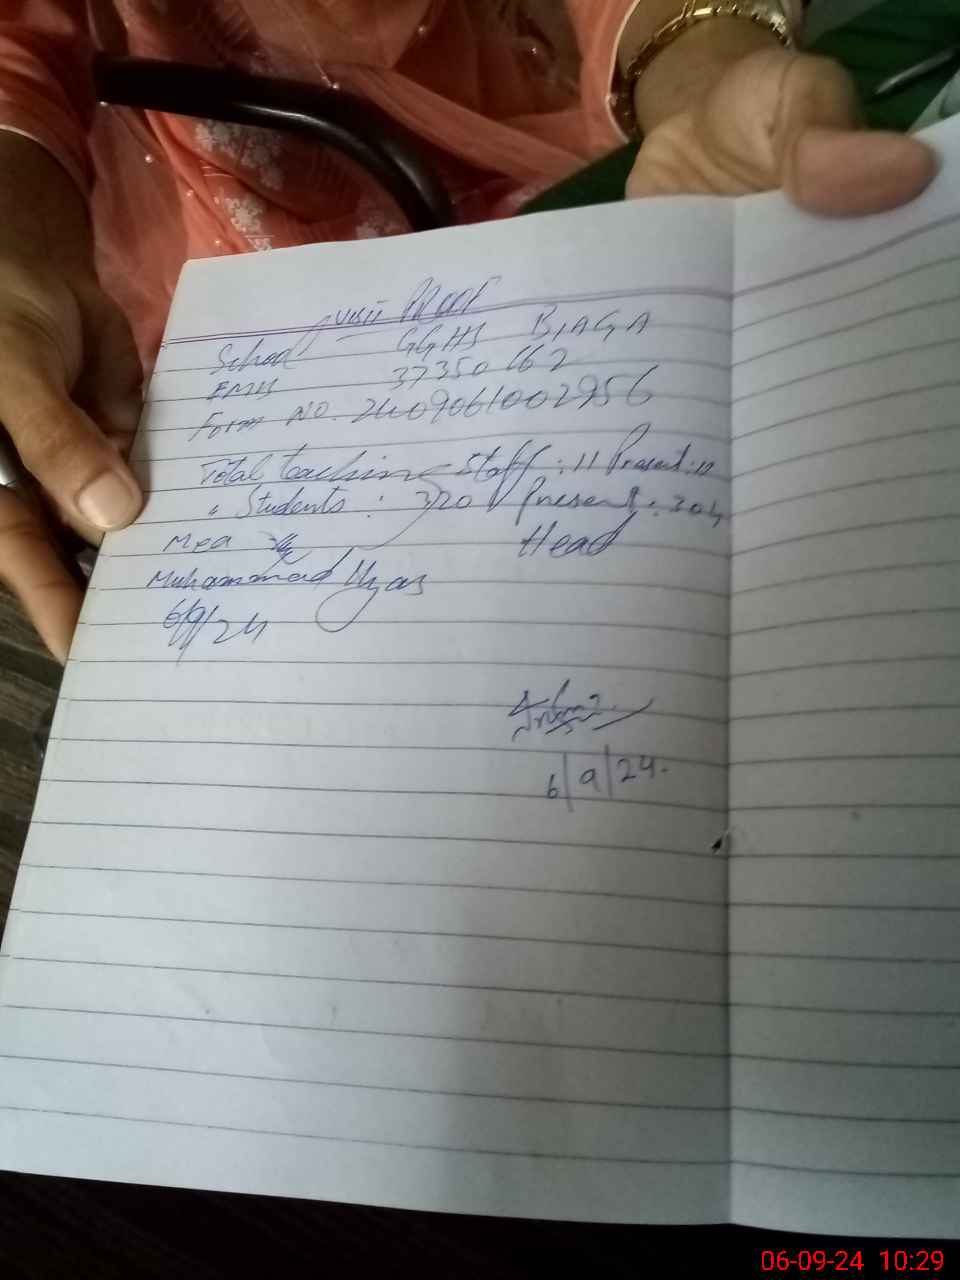 Visit PROOF
School GGHS BIAGA
EMIS 37350162
Form NO. 2409061002956
Total teaching Staff: 11 Present: 10
" Students: 320 Present: 304
MEA Head
Muhammad Ilyas
6/9/24
6/9/24.
06-09-24 10:29